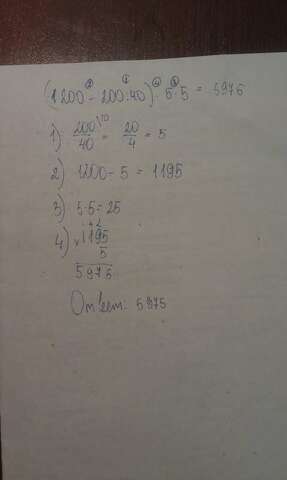 (1200 - 200:40) · 5·5 = 5975
1) 200/40 = 20/4 = 5
2) 1200 - 5 = 1195
3) 5·5 = 25
4) × 1195
5
5975
Ответ: 5975